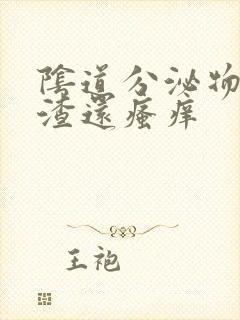 陰道分泌物
渣還瘙痒
王袍